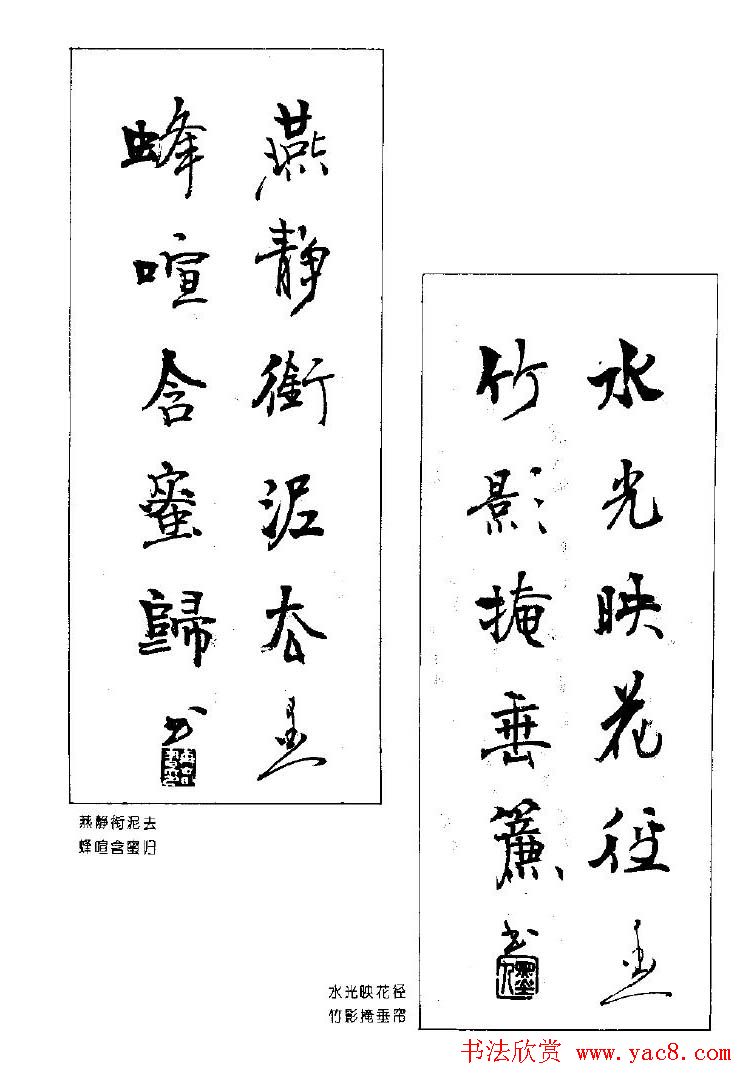 燕靜銜泥去
蜂喧含蜜歸 书
燕静衔泥去
蜂喧含蜜归
水光映花徑
竹影掩垂簾 书
水光映花径
竹影掩垂帘
书法欣赏 www.yac8.com